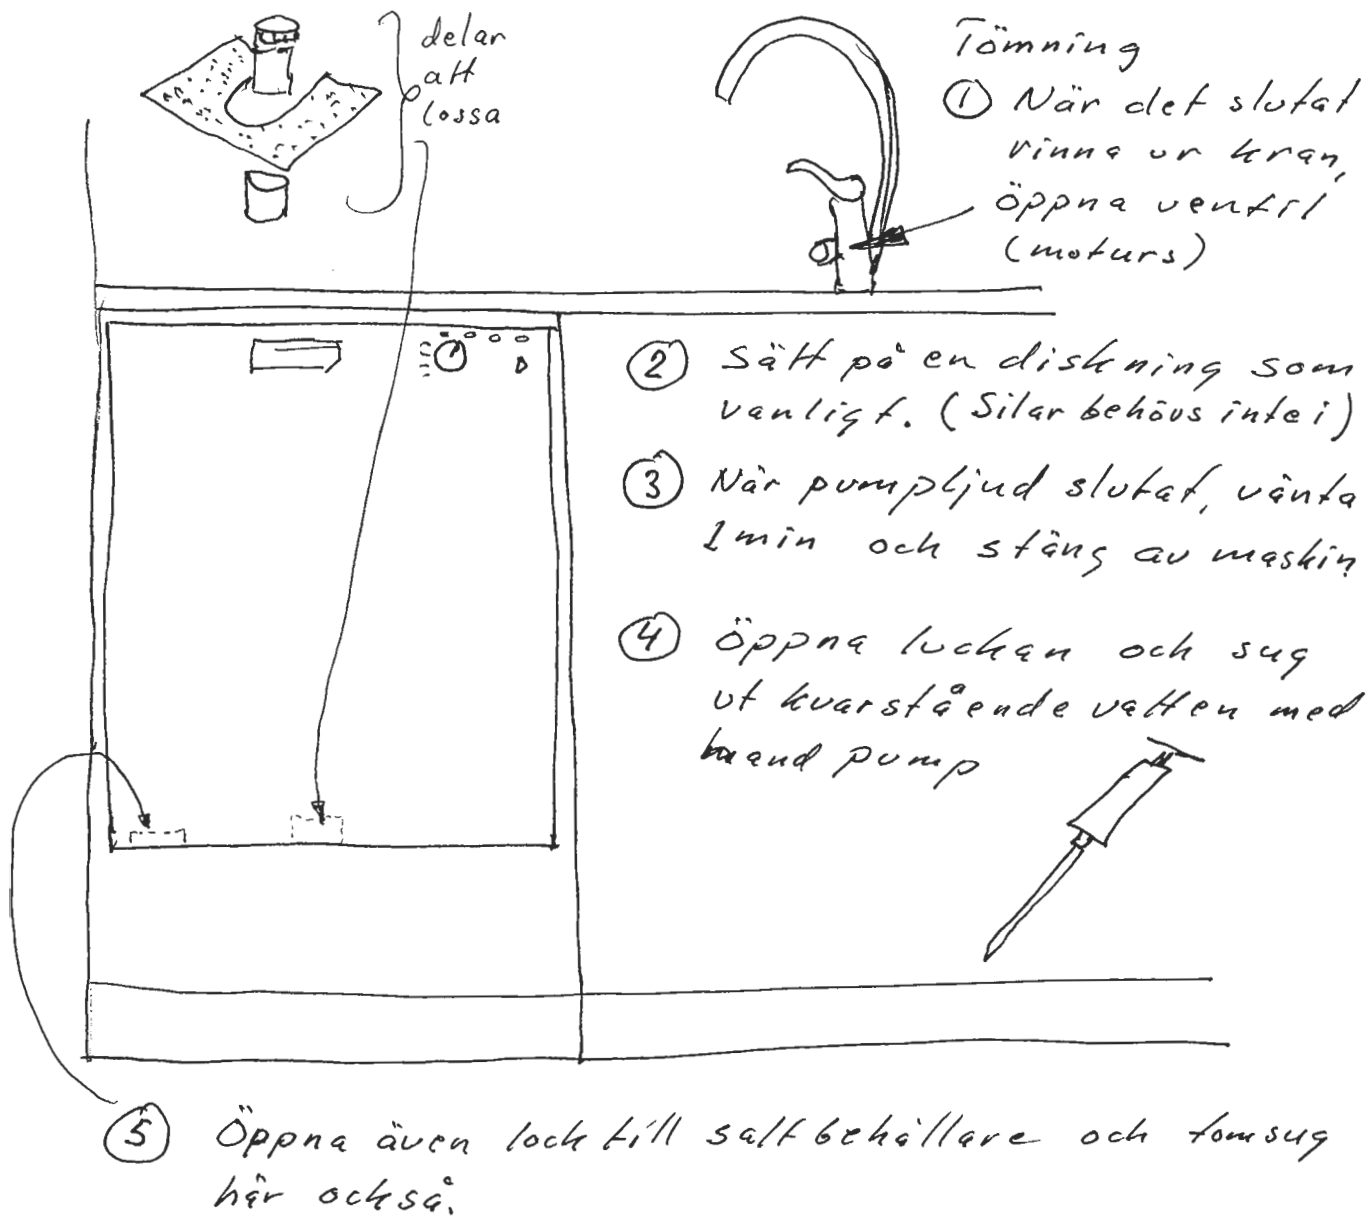 delar
att
lossa
Tömning
① När det slutat
rinna ur kran,
öppna ventil
(moturs)
② Sätt på en diskning som
vanligt. (Silar behövs inte i)
③ När pumpljud slutat, vänta
1 min och stäng av maskin
④ Öppna luckan och sug
ut kvarstående vatten med
hand pump
⑤ Öppna även lock till saltbehållare och tomsug
här också.